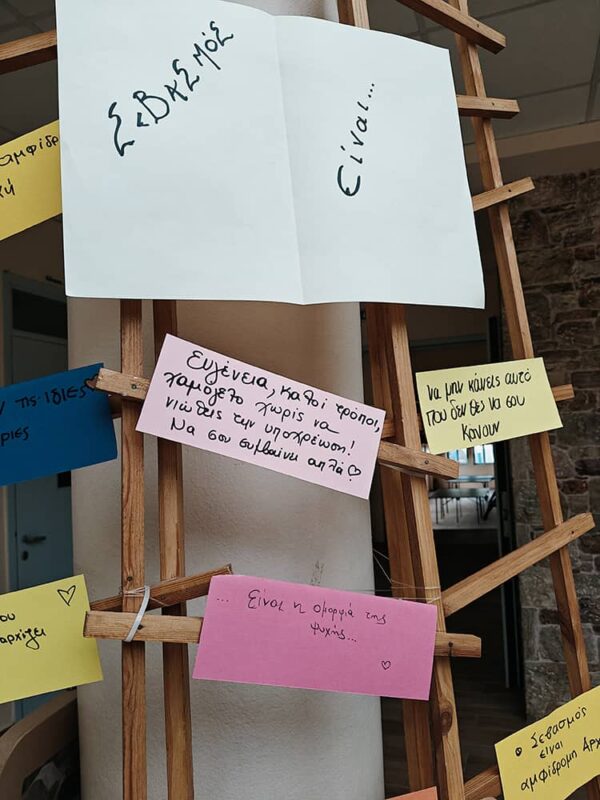 ΣεΒΑΣμός
είναι...
αμφίδρ
Ευγένεια, καλοί τρόποι,
χαμόγελο χωρίς να
νιώθεις την υποχρέωση!
Να σου συμβαίνει απλά ♡
Να μην κάνεις αυτό
που δεν θες να σου
κάνουν
τις ίδιες
ου
αρχίζει
... Είναι η ομορφιά της
ψυχής...
• Σεβασμός
είναι
αμφίδρομη Αρχ